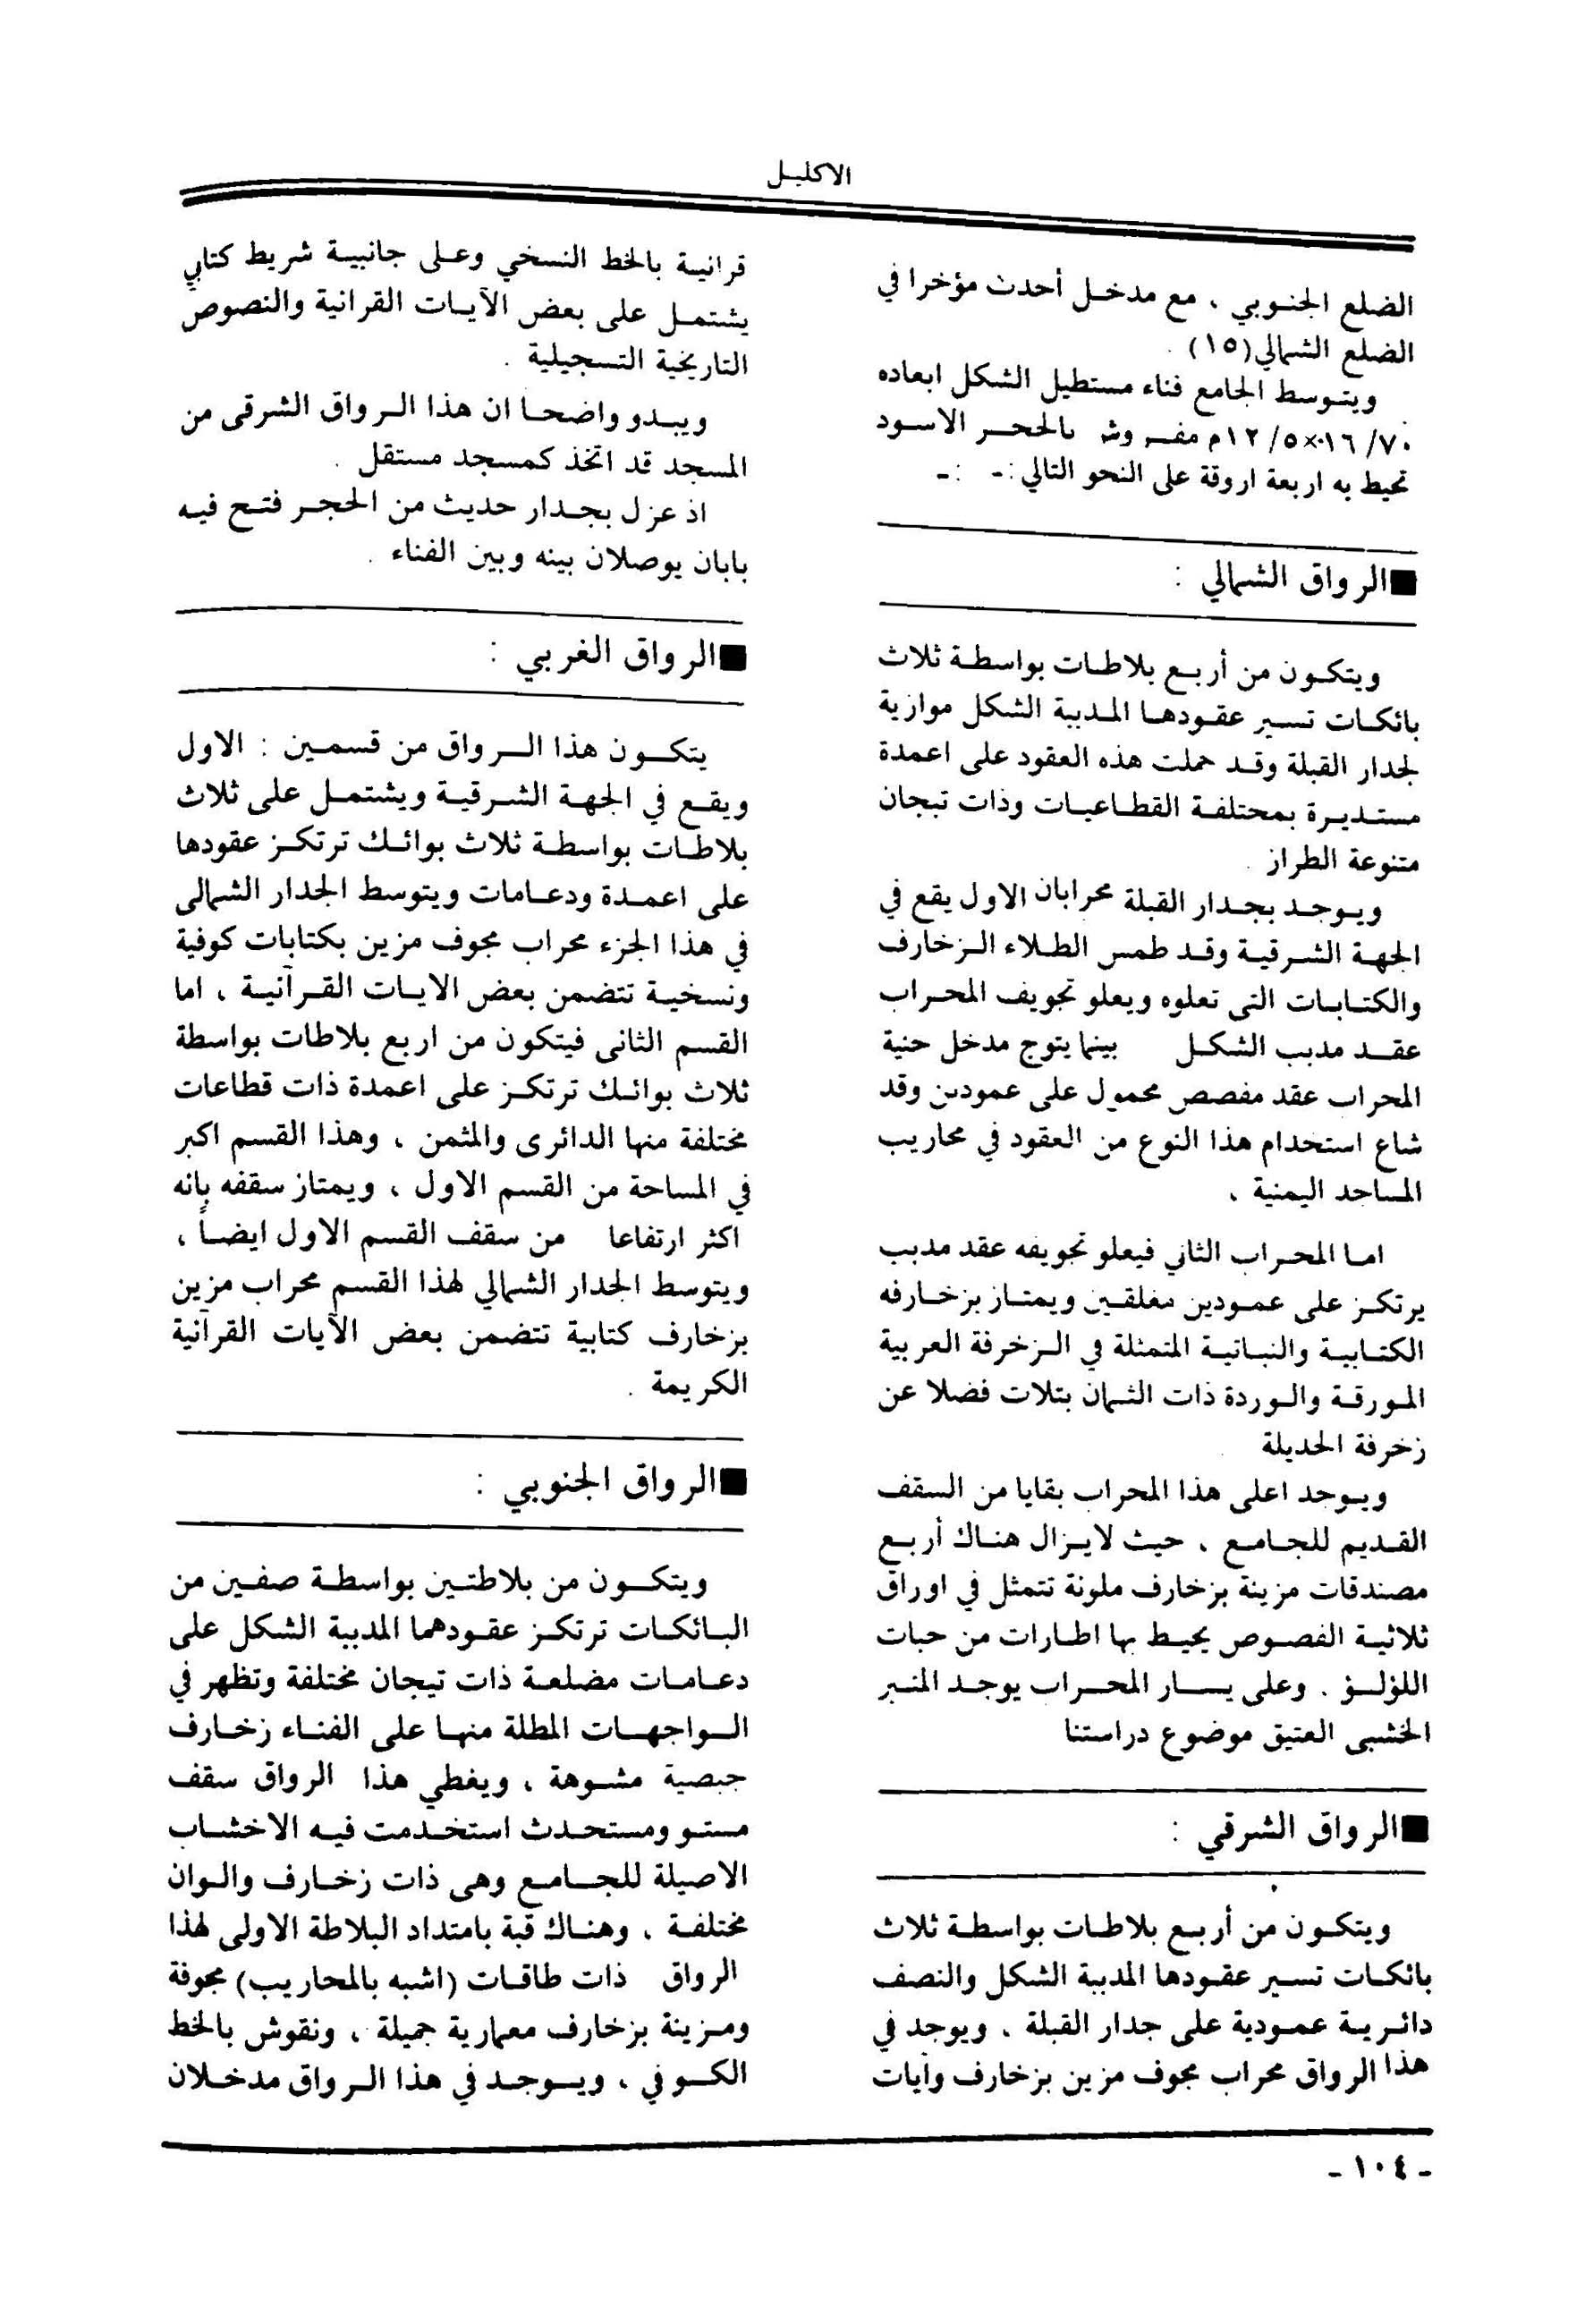 الاكليل
الضلع الجنوبي ، مع مدخل أحدث مؤخرا في
الضلع الشمالي (١٥) .
ويتوسط الجامع فناء مستطيل الشكل ابعاده
٧٠/ ١٦×٥/ ١٢م مفروش بالحجر الاسود
تحيط به اربعة اروقة على النحو التالي :ـ :ـ
■ الرواق الشمالي :
ويتكون من أربع بلاطات بواسطة ثلاث
بائكات تسير عقودها المدببة الشكل موازية
لجدار القبلة وقد حملت هذه العقود على اعمدة
مستديرة بمختلفة القطاعيات وذات تيجان
متنوعة الطراز .
ويوجد بجدار القبلة محرابان الاول يقع في
الجهة الشرقية وقد طمس الطلاء الزخارف
والكتابات التى تعلوه ويعلو تجويف المحراب
عقد مدبب الشكل بينما يتوج مدخل حنية
المحراب عقد مفصص محمول على عمودين وقد
شاع استخدام هذا النوع من العقود في محاريب
المساجد اليمنية ،
اما المحراب الثاني فيعلو تجويفه عقد مدبب
يرتكز على عمودين مغلقين ويمتاز بزخارفه
الكتابية والنباتية المتمثلة في الزخرفة العربية
المورقة والوردة ذات الثمان بتلات فضلا عن
زخرفة الجديلة .
ويوجد اعلى هذا المحراب بقايا من السقف
القديم للجامع ، حيث لايزال هناك أربع
مصندقات مزينة بزخارف ملونة تتمثل في اوراق
ثلاثية الفصوص يحيط بها اطارات من حبات
اللؤلؤ . وعلى يسار المحراب يوجد المنبر
الخشبى العتيق موضوع دراستنا
■ الرواق الشرقي :
ويتكون من أربع بلاطات بواسطة ثلاث
بائكات تسير عقودها المدببة الشكل والنصف
دائرية عمودية على جدار القبلة ، ويوجد في
هذا الرواق محراب مجوف مزين بزخارف وايات
قرانية بالخط النسخي وعلى جانبية شريط كتابي
يشتمل على بعض الآيات القرانية والنصوص
التاريخية التسجيلية .
ويبدو واضحا ان هذا الرواق الشرقى من
المسجد قد اتخذ كمسجد مستقل .
اذ عزل بجدار حديث من الحجر فتح فيه
بابان يوصلان بينه وبين الفناء .
■ الرواق الغربي :
يتكون هذا الرواق من قسمين : الاول
ويقع في الجهة الشرقية ويشتمل على ثلاث
بلاطات بواسطة ثلاث بوائك ترتكز عقودها
على اعمدة ودعامات ويتوسط الجدار الشمالى
في هذا الجزء محراب مجوف مزين بكتابات كوفية
ونسخية تتضمن بعض الايات القرآنية ، اما
القسم الثانى فيتكون من اربع بلاطات بواسطة
ثلاث بوائك ترتكز على اعمدة ذات قطاعات
مختلفة منها الدائرى والمثمن ، وهذا القسم اكبر
في المساحة من القسم الاول ، ويمتاز سقفه بانه
اكثر ارتفاعا من سقف القسم الاول ايضاً ،
ويتوسط الجدار الشمالي لهذا القسم محراب مزين
بزخارف كتابية تتضمن بعض الآيات القرآنية
الكريمة .
■ الرواق الجنوبي :
ويتكون من بلاطتين بواسطة صفين من
البائكات ترتكز عقودهما المدببة الشكل على
دعامات مضلعة ذات تيجان مختلفة وتظهر في
الواجهات المطلة منها على الفناء زخارف
جبصية مشوهة ، ويغطي هذا الرواق سقف
مستو ومستحدث استخدمت فيه الاخشاب
الاصيلة للجامع وهى ذات زخارف والوان
مختلفة ، وهناك قبة بامتداد البلاطة الاولى لهذا
الرواق ذات طاقات (اشبه بالمحاريب) مجوفة
ومزينة بزخارف معمارية جميلة ، ونقوش بالخط
الكوفي ، ويوجد في هذا الرواق مدخلان
- ١٠٤ -